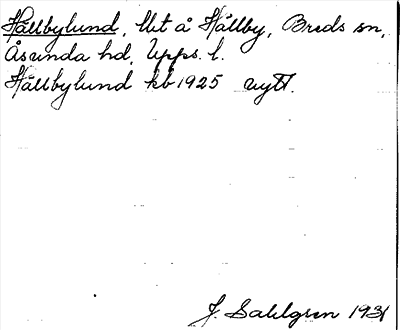 Hällbylund, lht å Hällby, Breds sn,
Åsunda hd, Upps. l.
Hällbylund kb 1925 nytt.
J. Sahlgren 1931